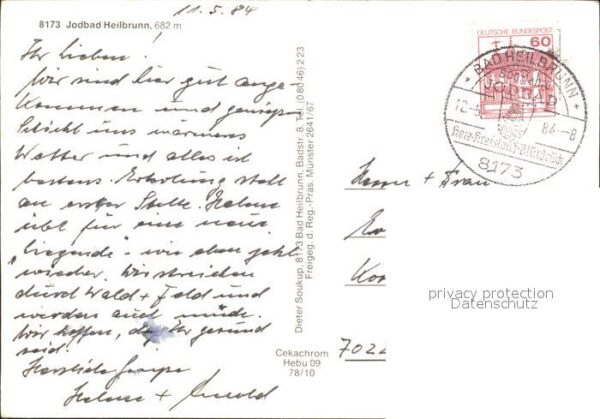 11.5.84
8173 Jodbad Heilbrunn, 682 m
Ihr Lieben!
Wir sind hier gut ange-
kommen und genießen
wärmeres
Wetter und alles ist
bestens. Erholung steht
an erster Stelle. Helene
übt für eine neue
"Liegende" - wie eben geht
wieder. Wir streichen
durch Wald + Feld und
werden auch müde.
Wir hoffen, daß Ihr gesund
seid!
Herzliche Grüße
Helene + Arnold
Dieter Soukup, 8173 Bad Heilbrunn, Badstr. 8, Tel. (08046) 2 23
Freigeg. d. Reg.-Präs. Münster 2641/67
Cekachrom
Hebu 09
78/10
DEUTSCHE BUNDESPOST
60
BAD HEILBRUNN
JODBAD
12.-5. 84.-8
8173
Herrn + Frau
7022
privacy protection
Datenschutz